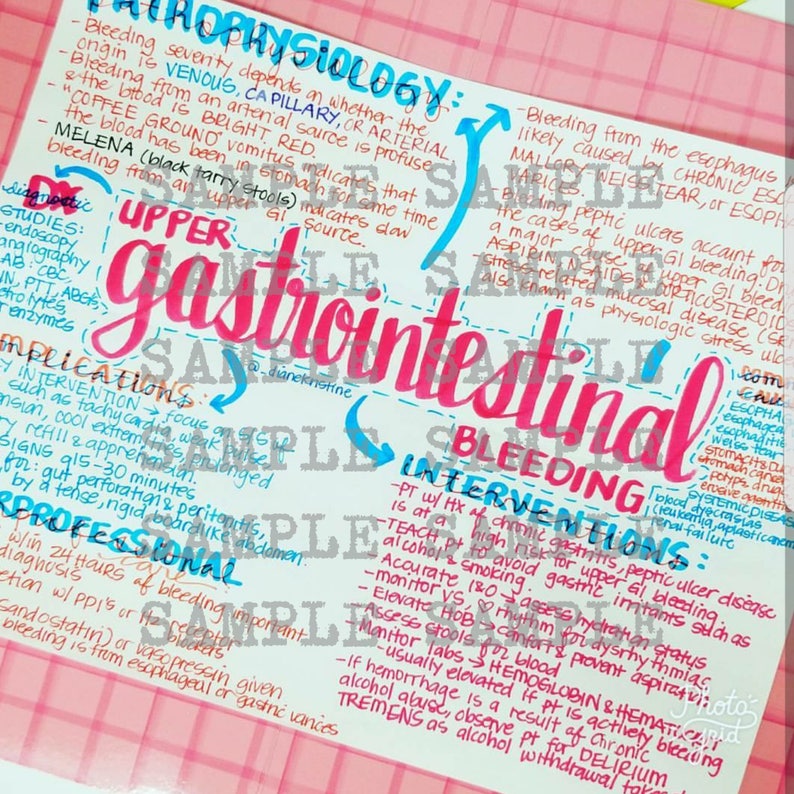 PATHOPHYSIOLOGY:
- Bleeding severity depends on whether the
origin is VENOUS, CAPILLARY, OR ARTERIAL
- Bleeding from an arterial source is profuse
& the blood is BRIGHT RED.
- "COFFEE GROUND" vomitus indicates that
the blood has been in stomach for some time
- MELENA (black tarry stools) indicates slow
bleeding from an upper GI source.
- Bleeding from the esophagus
likely caused by CHRONIC
MALLORY-WEISS TEAR, or
- Bleeding peptic ulcers account for
the cases of upper GI bleeding.
a major cause of upper GI
ASPIRIN, NSAIDS & CORTICOSTEROIDS
stress-related mucosal disease
also known as physiologic stress
DX
diagnostic
STUDIES:
endoscopy
angiography
LAB: CBC,
PTT, ABGs,
enzymes
UPPER
gastrointestinal
BLEEDING
@_dianekristine
INTERVENTION → Focus on s/s of
such as tachycardia, weak pulse,
cool extremities, prolonged
refill & apprehension.
SIGNS q15-30 minutes
for: gut perforation & peritonitis,
by a tense, rigid boardlike abdomen.
w/in 24 HOURS of bleeding important
diagnosis
w/ PPI's or H2 receptor
blockers
(sandostatin) or vasopressin given
bleeding is from esophageal or gastric varices
INTERVENTIONS:
- PT w/ Hx of chronic gastritis, peptic ulcer disease
is at ↑ high risk for upper GI bleeding.
- TEACH PT to avoid gastric irritants such as
alcohol & smoking.
- Accurate I&O → assess hydration status
- monitor VS, ♡ rhythm for dysrhythmias
- Elevate HOB → comfort & prevent aspiration
- Assess stools for blood
- Monitor labs → HEMOGLOBIN & HEMATOCRIT
- usually elevated if PT is actively bleeding
- If hemorrhage is a result of chronic
alcohol abuse, observe pt for DELIRIUM
TREMENS as alcohol withdrawal
STOMACH &
stomach cancer
polyps, drug
erosive gastritis
SYSTEMIC DISEASE
blood dyscrasias
(leukemia, aplastic anemia
renal failure
SAMPLE SAMPLE
SAMPLE SAMPLE
SAMPLE SAMPLE
SAMPLE SAMPLE
SAMPLE SAMPLE
SAMPLE SAMPLE
SAMPLE SAMPLE
Photo
grid